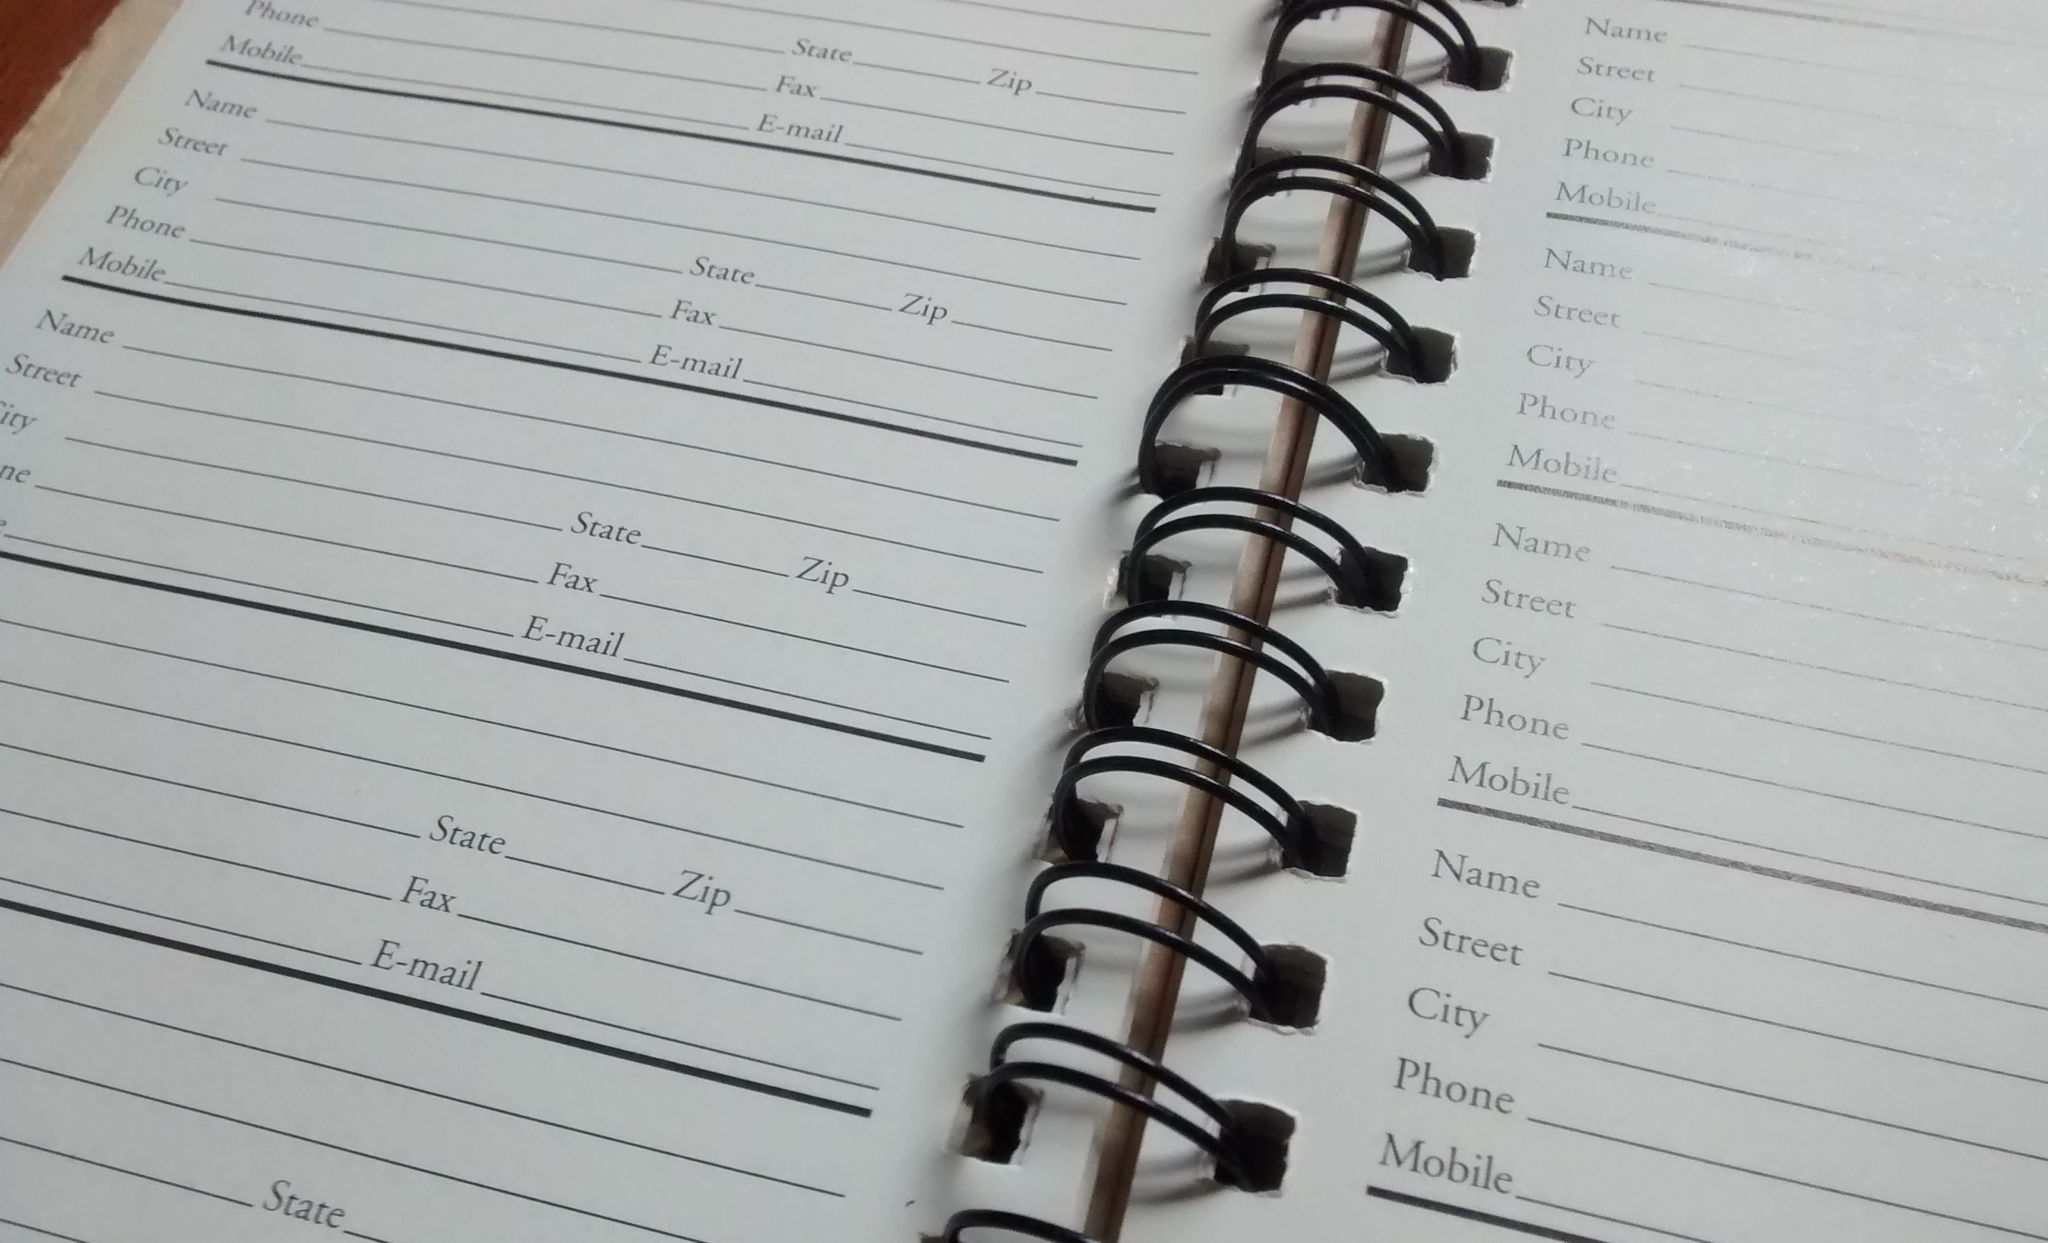 State Zip
Phone Fax
Mobile E-mail
Name
Street
City State Zip
Phone Fax
Mobile E-mail
Name
Street
ity State Zip
ne Fax
E-mail
State Zip
Fax
E-mail
State
Name
Street
City
Phone
Mobile
Name
Street
City
Phone
Mobile
Name
Street
City
Phone
Mobile
Name
Street
City
Phone
Mobile